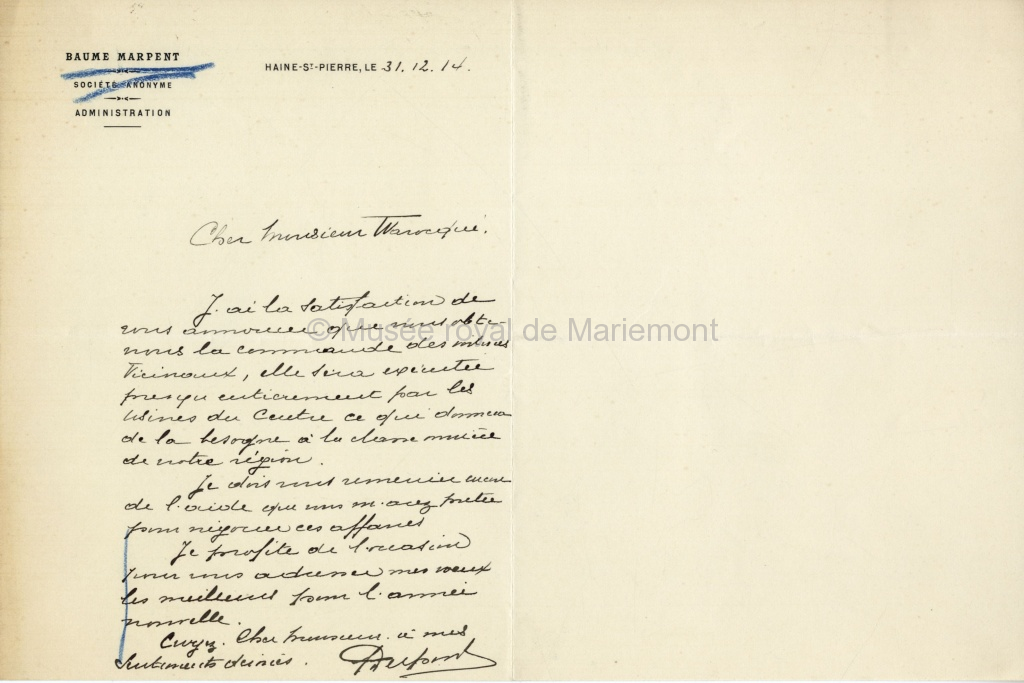 BAUME MARPENT
SOCIÉTÉ ANONYME
ADMINISTRATION
HAINE-ST-PIERRE, LE 31.12.14.
Cher Monsieur Warocqué.
J'ai la satisfaction de
vous annoncer que nous obte-
nons la commande des
Vicinaux, elle sera exécutée
presqu'entièrement par les
Usines du Centre ce qui donnera
de la besogne à la classe
de notre région.
Je dois vous remercier encore
de l'aide que vous m'avez prêtée
pour négocier ces affaires
Je profite de l'occasion
pour vous adresser mes vœux
les meilleurs pour l'année
nouvelle.
Croyez, Cher Monsieur à mes
Sentiments dévoués. Dupont
©Musée royal de Mariemont